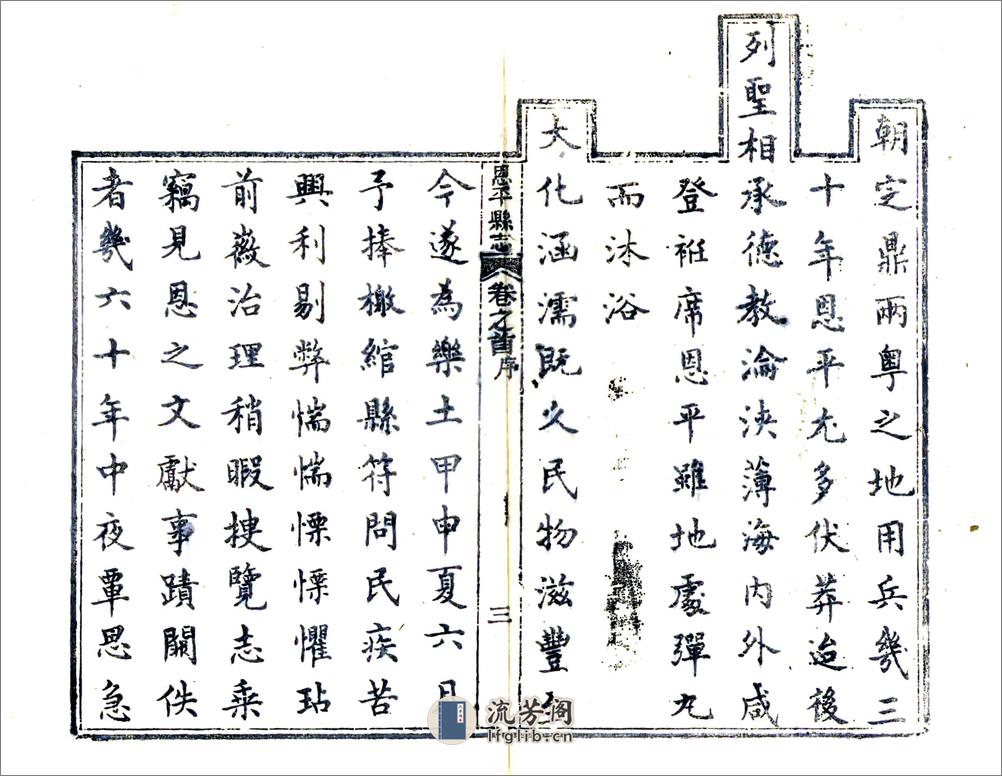 朝定鼎兩粵之地用兵幾三
十年恩平尤多伏莽迨後
列聖相承德教淪浹薄海內外咸
登袵席恩平雖地處彈丸
而沐浴
大化涵濡既久民物滋豐至
恩平縣志 卷之首 序 三
今遂為樂土甲申夏六月
予捧檄綰縣符問民疾苦
興利剔弊惴惴慄慄懼玷
前徽治理稍暇㨗覽志乘
竊見恩之文獻事蹟闕佚
者幾六十年中夜覃思急
流芳阁
lfglib.cn